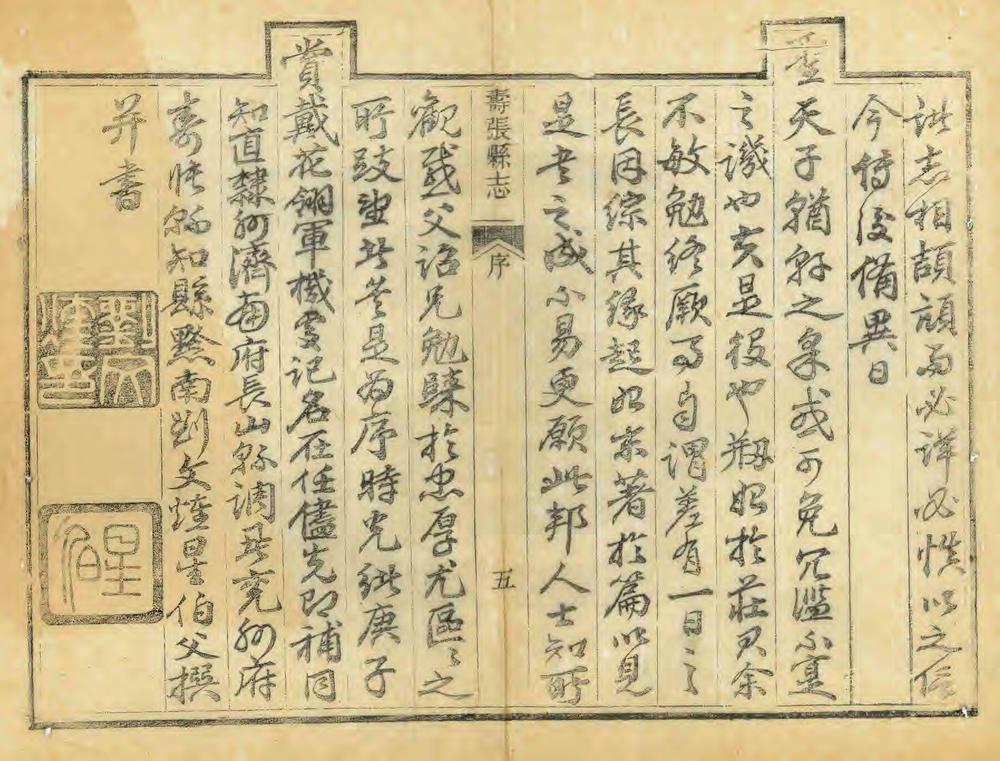 誌志相頡頏而必詳必慎以之信
今傳後備異日
聖天子輶軒之采或可免冗濫不寔
之譏也夫是役也剏始於莊君余
不敏勉終厥事自謂差有一日之
長因綜其緣起如案著於篇以見
是書之成不易更願此邦人士知所
觀感父詔兄勉隸於忠厚尤區區之
所跂望者是為序時光緒庚子
賞戴花翎軍機處記名在任儘先即補同
知直隸州濟南府長山縣調署兗州府
壽張縣知縣黔南劉文煃星伯父撰
并書
壽張縣志
序
五
星伯